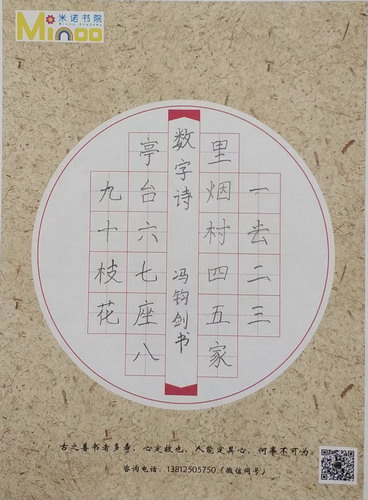 米诺书院
Minoo
一去二三
里烟村四五家
数字诗 冯钧剑书
亭台六七座八
九十枝花
古之善书者多寿,心定故也,人能定其心,何事不可为。
咨询电话:13812505750(微信同号)